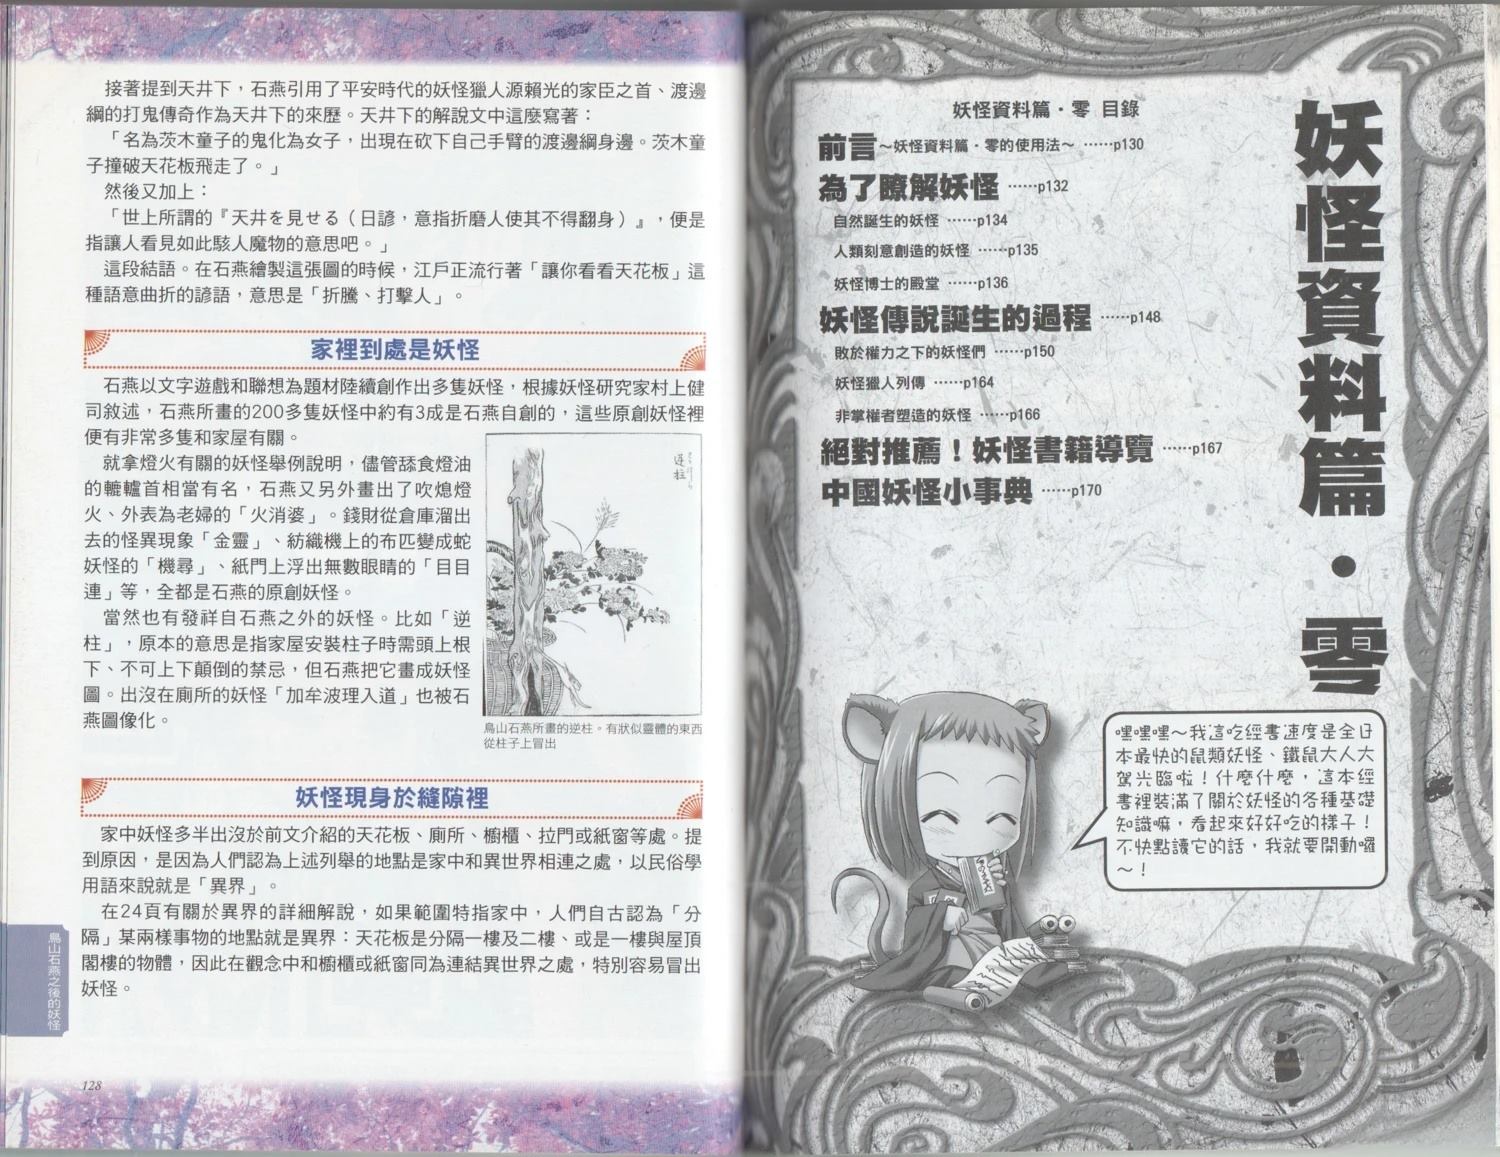 接著提到天井下，石燕引用了平安時代的妖怪獵人源賴光的家臣之首、渡邊
綱的打鬼傳奇作為天井下的來歷。天井下的解說文中這麼寫著：
「名為茨木童子的鬼化為女子，出現在砍下自己手臂的渡邊綱身邊。茨木童
子撞破天花板飛走了。」
然後又加上：
「世上所謂的『天井を見せる（日諺，意指折磨人使其不得翻身）』，便是
指讓人看見如此駭人魔物的意思吧。」
這段結語。在石燕繪製這張圖的時候，江戶正流行著「讓你看看天花板」這
種語意曲折的諺語，意思是「折騰、打擊人」。
家裡到處是妖怪
石燕以文字遊戲和聯想為題材陸續創作出多隻妖怪，根據妖怪研究家村上健
司敘述，石燕所畫的200多隻妖怪中約有3成是石燕自創的，這些原創妖怪裡
便有非常多隻和家屋有關。
就拿燈火有關的妖怪舉例說明，儘管舔食燈油
的轆轤首相當有名，石燕又另外畫出了吹熄燈
火、外表為老婦的「火消婆」。錢財從倉庫溜出
去的怪異現象「金靈」、紡織機上的布匹變成蛇
妖怪的「機尋」、紙門上浮出無數眼睛的「目目
連」等，全都是石燕的原創妖怪。
當然也有發祥自石燕之外的妖怪。比如「逆
柱」，原本的意思是指家屋安裝柱子時需頭上根
下、不可上下顛倒的禁忌，但石燕把它畫成妖怪
圖。出沒在廁所的妖怪「加牟波理入道」也被石
燕圖像化。
逆柱
鳥山石燕所畫的逆柱。有狀似靈體的東西
從柱子上冒出
妖怪現身於縫隙裡
家中妖怪多半出沒於前文介紹的天花板、廁所、櫥櫃、拉門或紙窗等處。提
到原因，是因為人們認為上述列舉的地點是家中和異世界相連之處，以民俗學
用語來說就是「異界」。
在24頁有關於異界的詳細解說，如果範圍特指家中，人們自古認為「分
隔」某兩樣事物的地點就是異界：天花板是分隔一樓及二樓、或是一樓與屋頂
閣樓的物體，因此在觀念中和櫥櫃或紙窗同為連結異世界之處，特別容易冒出
妖怪。
鳥山石燕之後的妖怪
128
妖怪資料篇・零
妖怪資料篇・零 目錄
前言～妖怪資料篇・零的使用法～ ⋯⋯p130
為了瞭解妖怪 ⋯⋯p132
自然誕生的妖怪 ⋯⋯p134
人類刻意創造的妖怪 ⋯⋯p135
妖怪博士的殿堂 ⋯⋯p136
妖怪傳說誕生的過程 ⋯⋯p148
敗於權力之下的妖怪們 ⋯⋯p150
妖怪獵人列傳 ⋯⋯p164
非掌權者塑造的妖怪 ⋯⋯p166
絕對推薦！妖怪書籍導覽 ⋯⋯p167
中國妖怪小事典 ⋯⋯p170
嘿嘿嘿～我這吃經書速度是全日
本最快的鼠類妖怪、鐵鼠大人大
駕光臨啦！什麼什麼，這本經
書裡裝滿了關於妖怪的各種基礎
知識嘛，看起來好好吃的樣子！
不快點讀它的話，我就要開動囉
～！